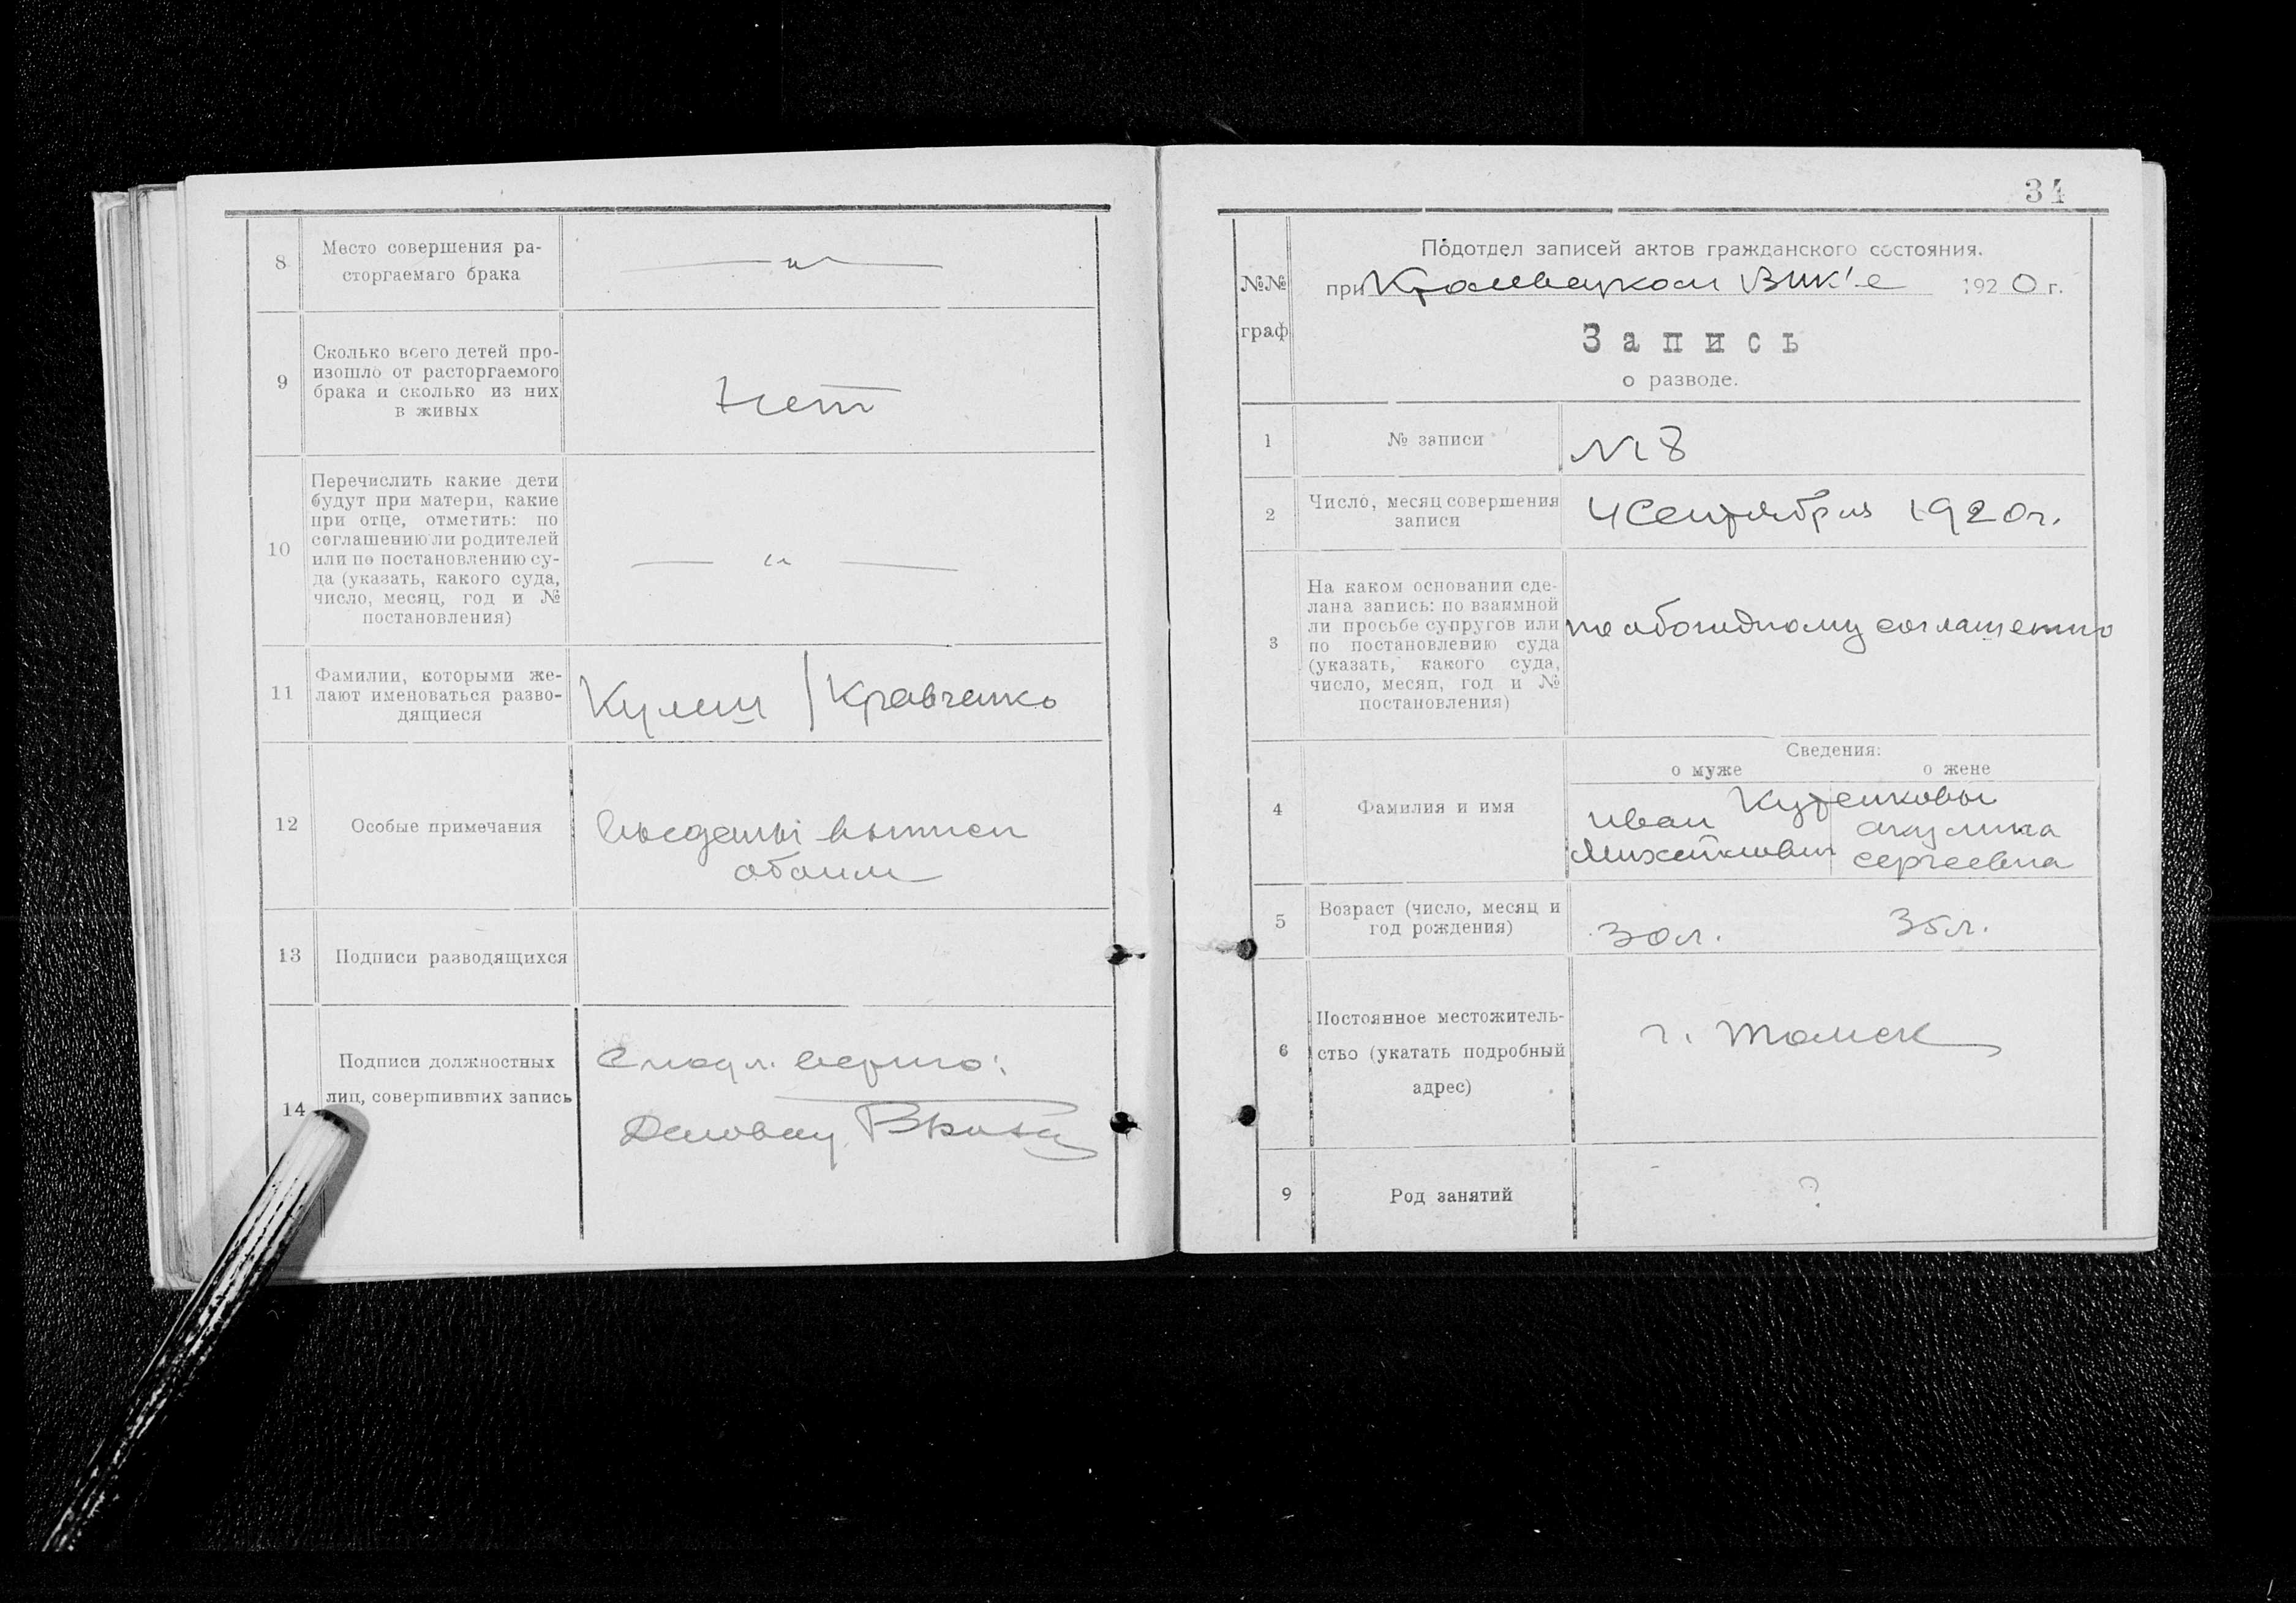 8
Место совершения ра-
сторгаемаго брака
— " —
9
Сколько всего детей про-
изошло от расторгаемого
брака и сколько из них
в живых
Нет
10
Перечислить какие дети
будут при матери, какие
при отце, отметить: по
соглашению ли родителей
или по постановлению су-
да (указать, какого суда,
число, месяц, год и №
постановления)
— " —
11
Фамилии, которыми же-
лают именоваться разво-
дящиеся
Кулеш / Кравченко
12
Особые примечания
выписи
обоим
13
Подписи разводящихся
14
Подписи должностных
лиц, совершивших запись
С подл. верно:
Деловод
34
№№
граф
Подотдел записей актов гражданского состояния.
при ВИК'е 1920 г.
Запись
о разводе.
1
№ записи
№ 8
2
Число, месяц совершения
записи
4 Сентября 1920 г.
3
На каком основании сде-
лана запись: по взаимной
ли просьбе супругов или
по постановлению суда
(указать, какого суда,
число, месяц, год и №
постановления)
по обоюдному соглашению
4
Фамилия и имя
Сведения:
о муже о жене
Иван Акулина
Михайлович Сергеевна
5
Возраст (число, месяц и
год рождения)
30 л. 35 л.
6
Постоянное местожитель-
ство (укатать подробный
адрес)
г. Томск
9
Род занятий
?